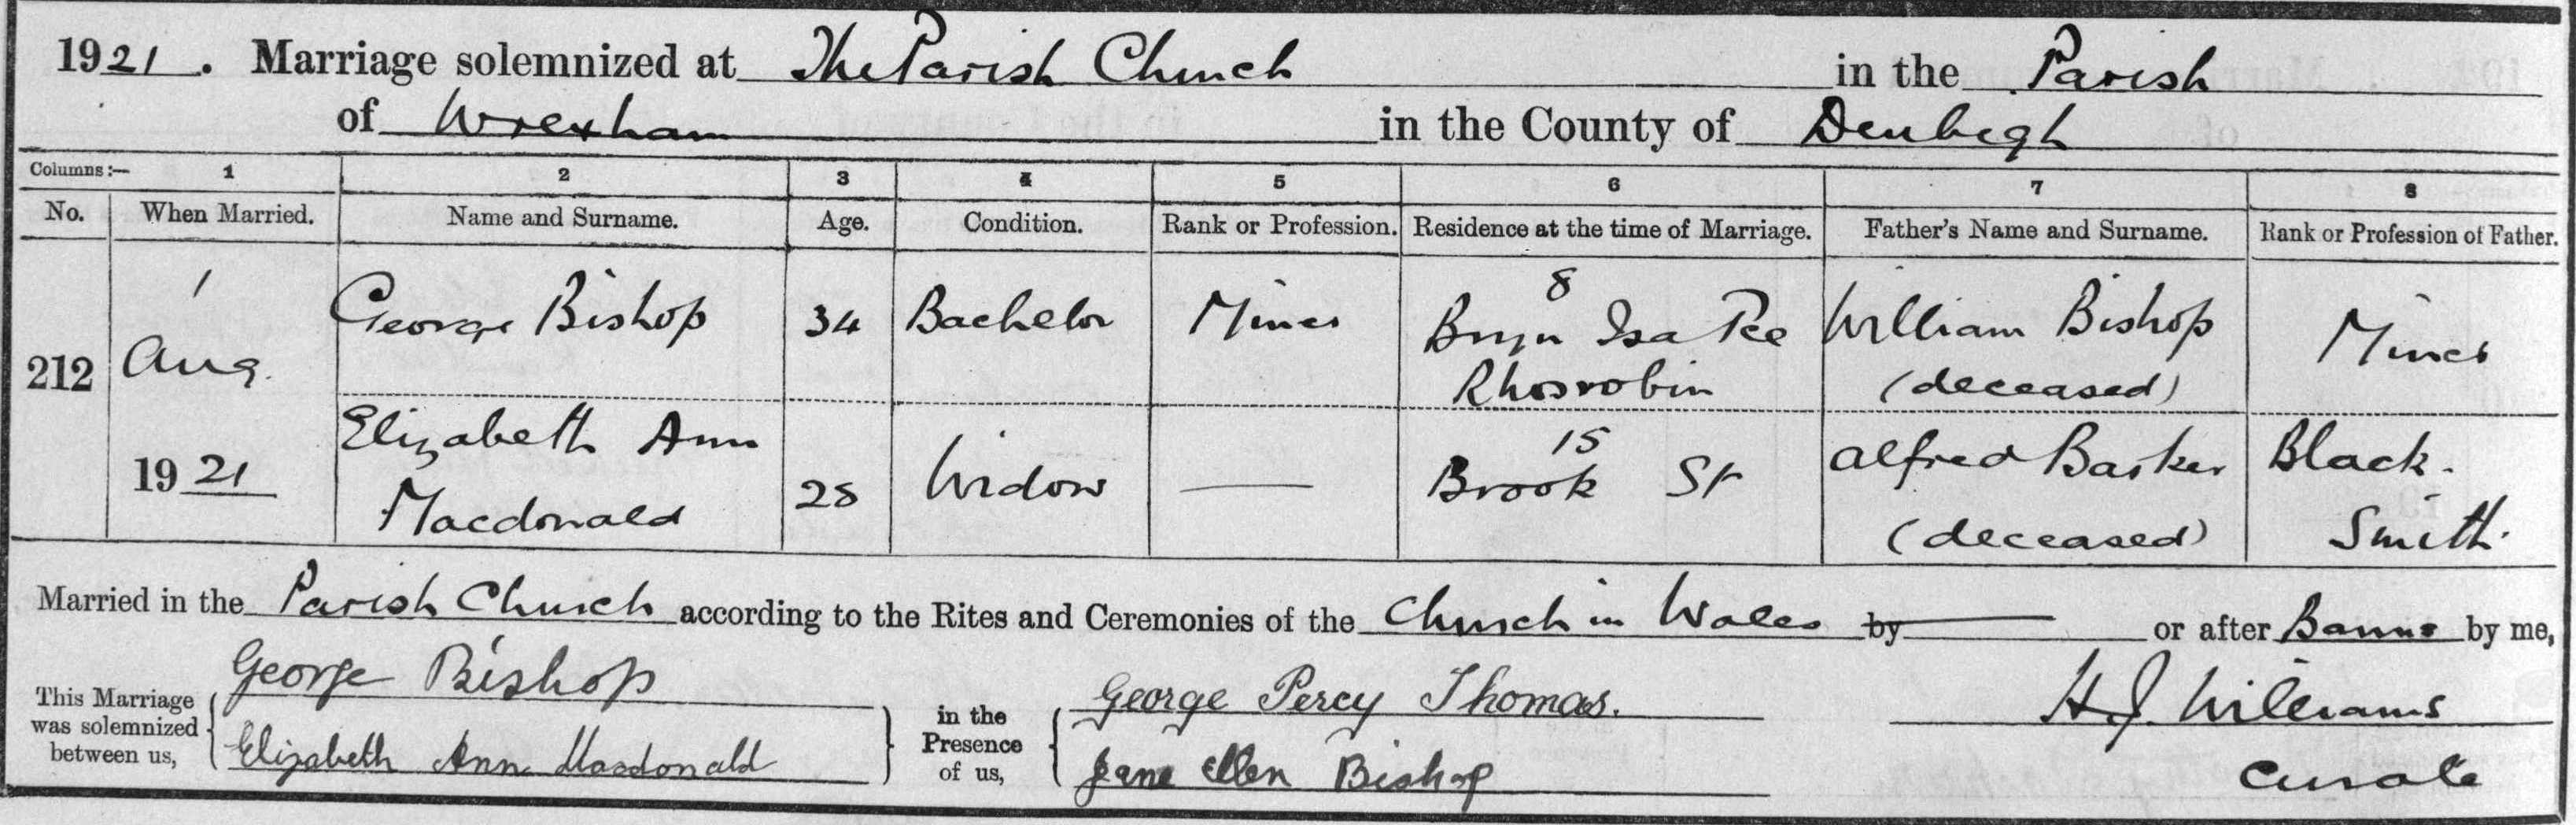 1921. Marriage solemnized at The Parish Church in the Parish
of Wrexham in the County of Denbigh
Columns:— 1 2 3 4 5 6 7 8
No. When Married. Name and Surname. Age. Condition. Rank or Profession. Residence at the time of Marriage. Father's Name and Surname. Rank or Profession of Father.
212
1
Aug.
1921
George Bishop
34
Bachelor
Miner
8
Bryn Isa Tce
Rhosrobin
William Bishop
(deceased)
Miner
Elizabeth Ann
Macdonald
28
Widow
—
15
Brook St
Alfred Barker
(deceased)
Black-
Smith.
Married in the Parish Church according to the Rites and Ceremonies of the Church in Wales by — or after Banns by me,
This Marriage
was solemnized
between us,
George Bishop
Elizabeth Ann Macdonald
in the
Presence
of us,
George Percy Thomas.
Jane Ellen Bishop
H J. Williams
Curate